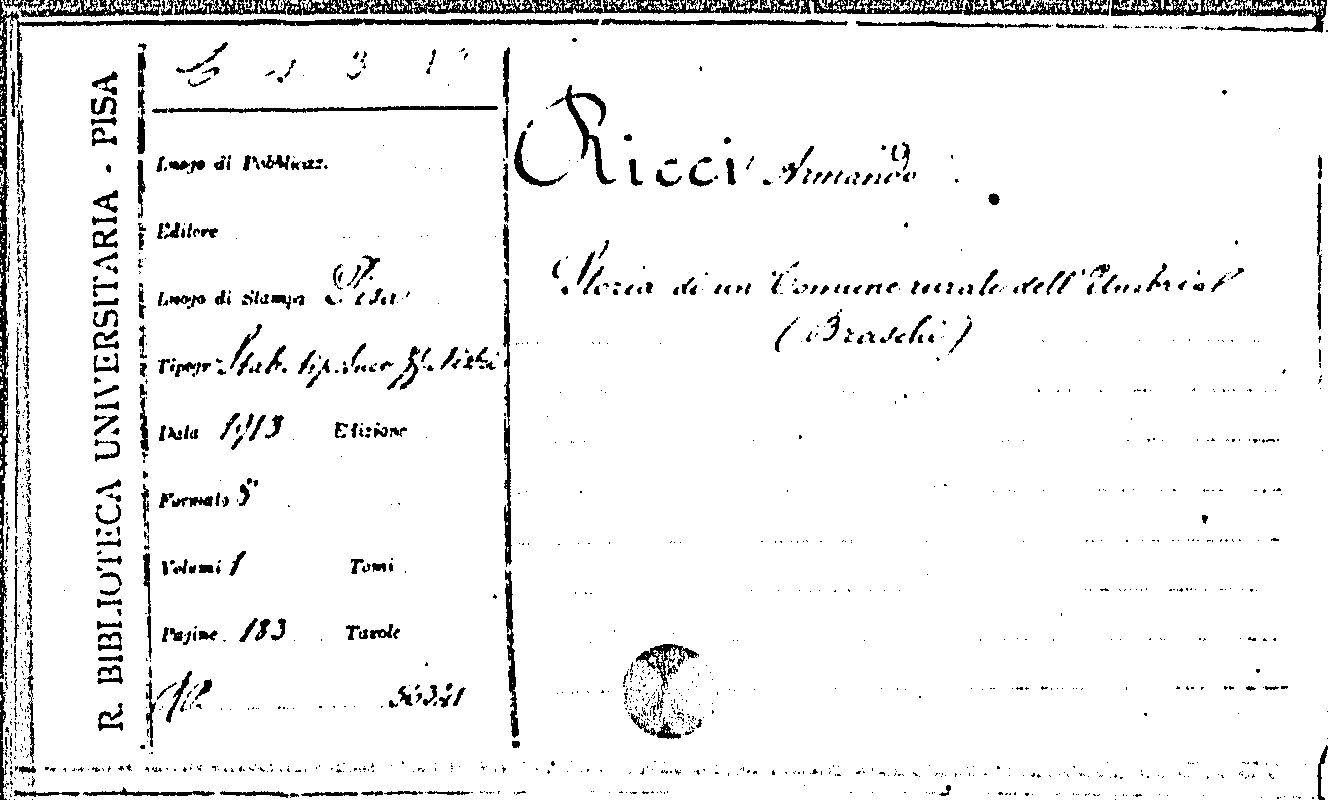 R. BIBLIOTECA UNIVERSITARIA - PISA
Luogo di Pubblicaz.
Editore
Luogo di Stampa Pisa
Tipogr. Stab. tip. Succ. FF. Nistri
Data 1913 Edizione
Formato 8°
Volumi 1 Tomi
Pagine 183 Tavole
Ricci Armando
Storia di un Comune rurale dell'Umbria
(Braschi)